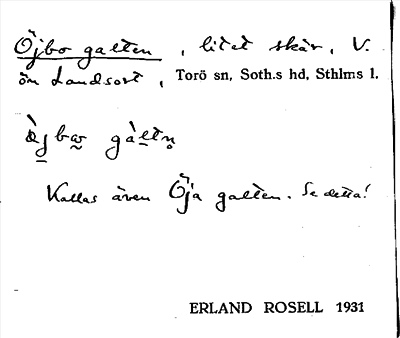 Öjbo galten, litet skär, V.
ön Landsort, Torö sn, Soth.s hd, Sthlms l.
gàltn̥
Kallas även Öja galten. Se detta!
ERLAND ROSELL 1931